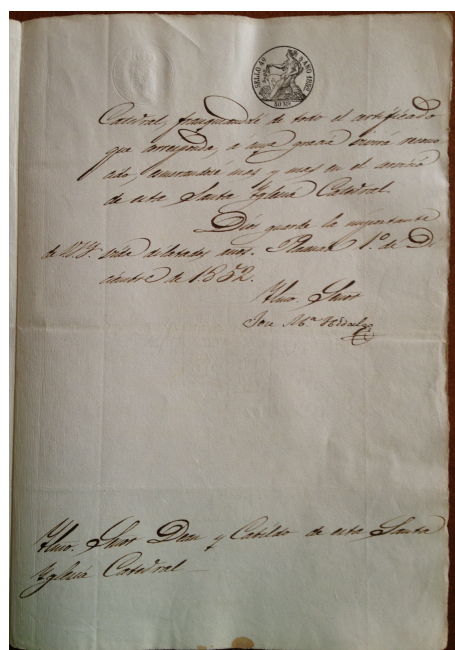 SELLO 4º AÑO 1852
40 MS
Catedral, franqueando de todo el certificado
que corresponde, a cuya gracia vivire recono
cido, esmerandome mas y mas en el servicio
de esta Santa Yglesia Catedral.
Dios guarde la importante
de V.S.Y. vida dilatados años. 1º de Di
ciembre de 1852.
Ylmo. Señor
Jose Mª
Ylmo. Señor Dean y Cabildo de esta Santa
Yglesia Catedral